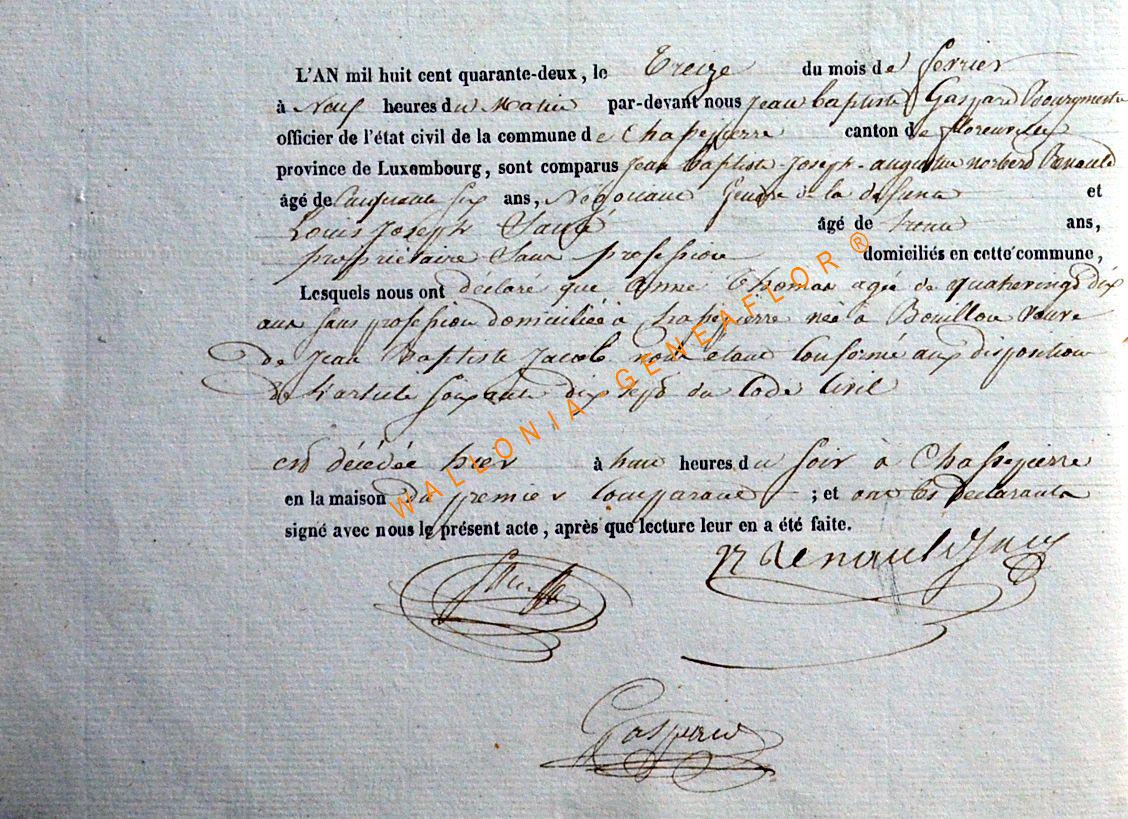 L'AN mil huit cent quarante-deux, le Treize du mois de fevrier
à Neuf heures du Matin par-devant nous Jean baptiste Gaspard Bourgmestre
officier de l'état civil de la commune de Chassepierre canton de florenville
province de Luxembourg, sont comparus Jean baptiste Joseph augustin norbert Renauld
âgé de Cinquante six ans, Négociant Gendre de la defunte et
Louis Joseph âgé de trente ans,
propriétaire Sans profession domiciliés en cette commune,
Lesquels nous ont déclaré que Anne Thomas agée de quatrevingt dix
ans sans profession domiciliée à chassepierre née à Bouillon veuve
de Jean Baptiste Jacob, nous étant conformé aux disposition
de l'article soixante dix sept du Code Civil
est décédée hier à huit heures du soir à Chassepierre
en la maison du premier Comparant ; et ont les declarants
signé avec nous le présent acte, après que lecture leur en a été faite.
WALLONIA GENEAFLOR ®
Gaspard